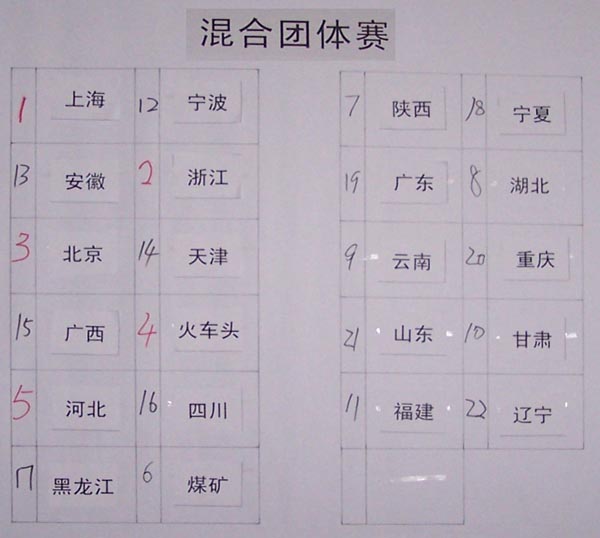 混合团体赛
1 上海 12 宁波 7 陕西 18 宁夏
13 安徽 2 浙江 19 广东 8 湖北
3 北京 14 天津 9 云南 20 重庆
15 广西 4 火车头 21 山东 10 甘肃
5 河北 16 四川 11 福建 22 辽宁
17 黑龙江 6 煤矿